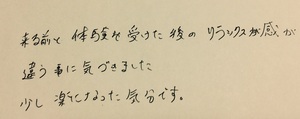 来る前と体験を受けた後のリラックスが感が
違う事に気づきました
少し楽になった気分です。